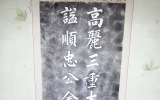 高麗三重大
謚順忠公